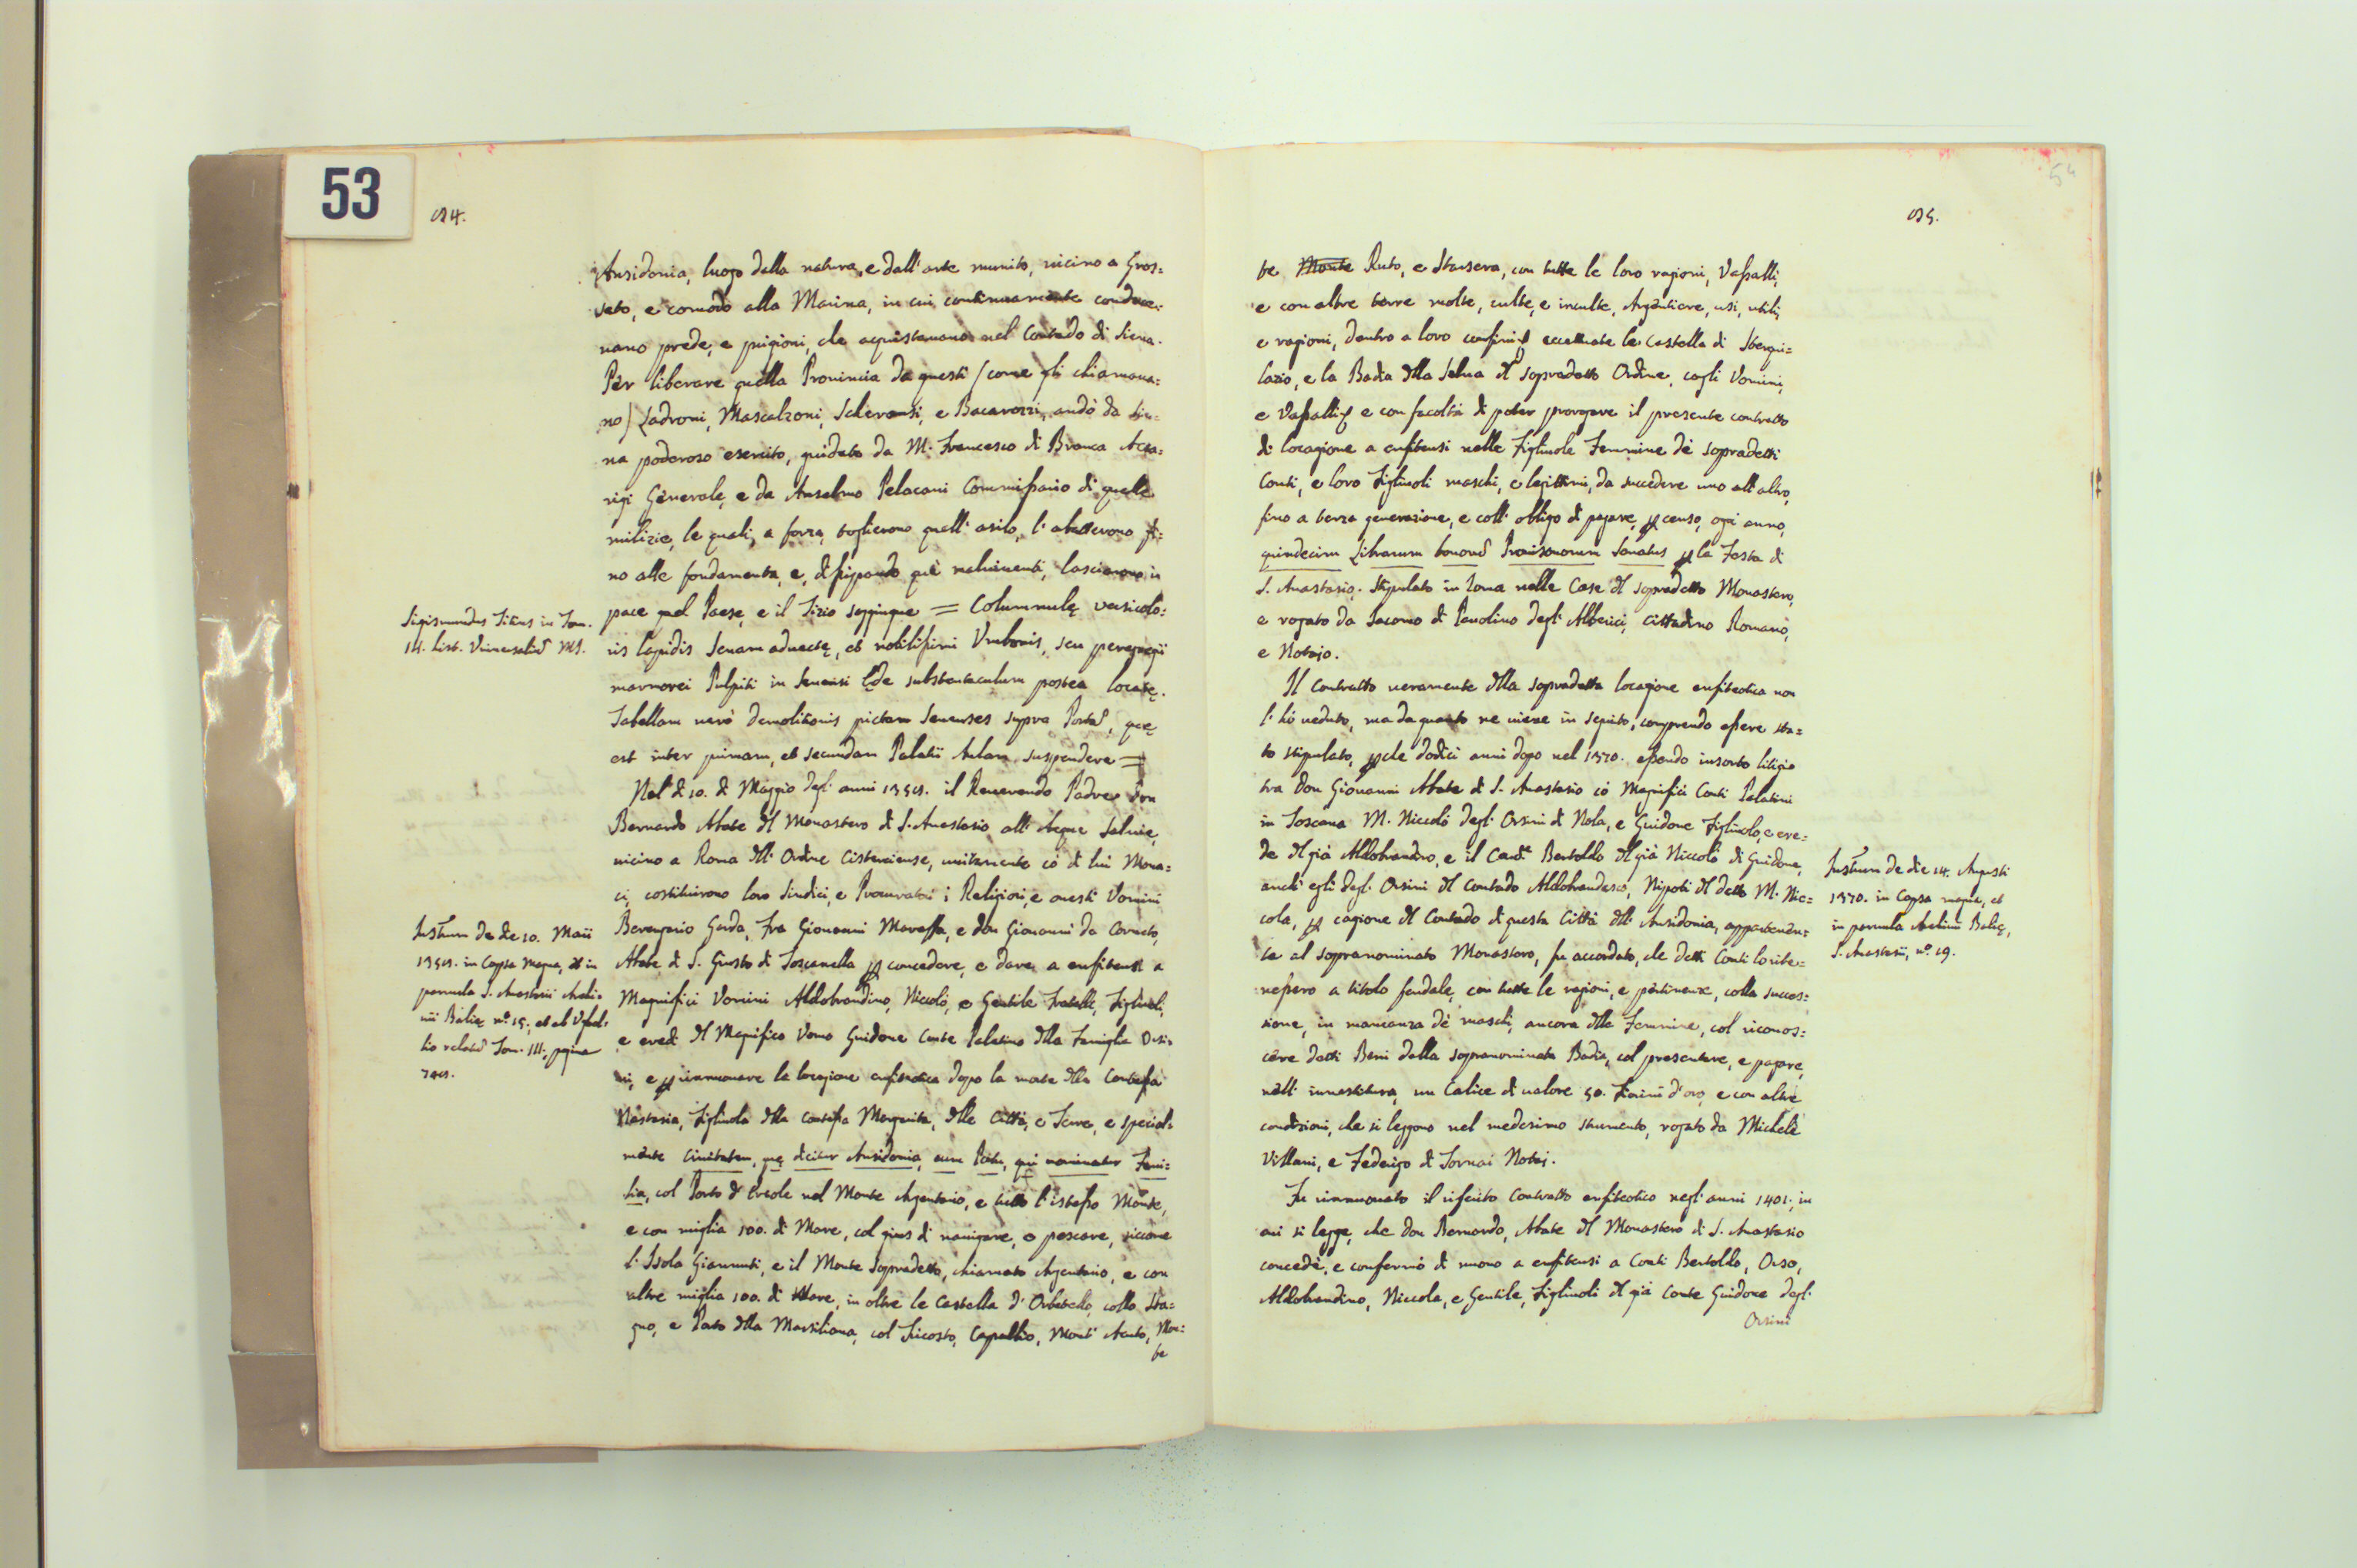 53
54
Ansidonia, luogo dalla natura, e dall'arte munito, vicino a Gros=
seto, e comodo alla Marina, in cui continuamente conduce:
vano prede, e prigioni, che acquistavano nel Contado di Siena.
Per liberare quella Provincia da questi (come gli chiamava:
no) Ladroni, Mascalzoni, Scheransi, e Bacarozzi, andò da Sie:
na poderoso esercito, guidato da M. Francesco di Branca Acca:
rigi Generale, e da Anselmo Pelacani Commissario di quelle
milizie, le quali, a forza, toglierono quell'asilo, l'abatterono fi:
no alle fondamenta, e, dissipando què malviventi, lasciarono in
pace quel Paese, e il Tizio soggiugne = Columnulę versicolo:
ris lapidis Senam advectę, et nobilissimi Umbonis, seu peregregii
marmorei Pulpiti in Senensi Ęde substentaculum postea locatę.
Tabellam verò demolitionis pictam Senenses supra Portā, quę
est inter primam, et secundam Palatii Aulam suspendere =
Nel dì 10. di Maggio degl'anni 1358. il Reverendo Padre Don
Bernardo Abate dl Monastero di S. Anastasio all'Acque Salvie,
vicino a Roma dll'Ordine Cisterciense, unitamente cò di lui Mona:
ci, costituirono loro Sindici, e Procuratori i Religiosi, e onesti Uomini
Berengario Garda, Fra Giovanni Marassa, e don Giovanni da Corneto,
Abate di S. Giusto di Toscanella p concedere, e dare a enfiteusi a
Magnifici Uomini Aldobrandino, Niccolò, e Gentile Fratelli, Figliuoli,
e eredi dl Magnifico Uomo Guidone Conte Palatino dlla Famiglia Orsi:
ni, e p rinnuovare la locazione enfiteotica dopo la morte dlla Contessa
Nastasia, Figliuola dlla Contessa Margarita, dlle Città, e Terre, e special:
mente Civitatem, quę dicitur Ansidonia, cum Portu, qui nominatur Feni:
lia, col Porto d'Ercole nel Monte Argentario, e tutto l'istesso Monte,
e con miglia 100. di Mare, col gius di navigare, e pescare, siccome
l'Isola Giannuti, e il Monte Sopradetto, chiamato Argentario, e con
altre miglia 100. di Mare, in oltre le Castella d'Orbetello, collo Sta:
gno, e Porto dlla Marsiliana, col Tricosto, Capalbio, Mont'Acuto, Mon:
te
Sigismundus Titius in Tom.
III. hist. Universaliū MS.
Instrum de die 10. Maii
1358. in Capsa magna, et in
parvula S. Anastasii Archi:
vii Balię nº. 15. et ab Ughel:
lio relatū Tom. III. pagina
55.
te Monte Ruto, e Stansera, con tutte le loro ragioni, Vassalli,
e con altre terre molte, culte, e inculte, Argentiere, usi, utili,
e ragioni, dentro a loro confini, eccettuate le Castella di Sterqui:
lazio, e la Badia dlla Selva dl sopradetto Ordine, cogli Uomini,
e Vassalli, e con facoltà di poter prorogare il presente contratto
di locagione a enfiteusi nelle Figliuole Femmine dè sopradetti
Conti, e loro Figliuoli maschi, e legittimi, da succedere uno all'altro,
fino a terza generazione, e coll'obligo di pagare, p censo, ogni anno,
quindecim Librarum bonorū Provisinorum Senatus p la Festa di
S. Anastasio. Stipulato in Roma nelle Case dl sopradetto Monastero,
e rogato da Jacomo di Pauolino degl'Alberici, cittadino Romano,
e Notajo.
Il contratto veramente dlla sopradetta locagione enfiteotica non
l'hò veduto, ma da quanto ne viene in seguito, comprendo essere sta=
to stipulato, p che dodici anni dopo nel 1370. essendo insorto litigio
tra don Giovanni Abate di S. Anastasio cò Magnifici Conti Palatini
in Toscana M. Niccolò degl'Orsini di Nola, e Guidone Figliuolo, e ere=
de dl già Aldobrandino, e il Conte Bertoldo dl già Niccolò di Guidone,
anch'egli degl'Orsini dl Contado Aldobrandesco, Nipoti dl detto M. Nic=
cola, p cagione dl Contado di questa Città dll'Ansidonia, appartenen=
te al sopranominato Monastero, fu accordato, che detti Conti lo rite=
nessero a titolo feudale, con tutte le ragioni, e pertinenze, colla succes:
sione, in mancanza dè maschi, ancora dlle Femmine, col riconos:
cere detti Beni dalla sopranominata Badia, col presentare, e pagare,
nell'investitura, un Calice di valore 50. Fiorini d'oro, e con altre
condizioni, che si leggono nel medesimo strumento, rogato da Michele
Villani, e Federigo di Tornai Notai.
Fu rinnuovato il riferito Contratto enfiteotico negl'anni 1401. in
cui si legge, che don Bernardo, Abate dl Monastero di S. Anastasio
concedè, e confermò di nuovo a enfiteusi a Conti Bertoldo, Orso,
Aldobrandino, Niccola, e Gentile, Figliuoli dl già Conte Guidone degl'
Orsini
Instrum de die 14. Augusti
1370. in Capsa magna, et
in parvula Archivii Balię,
S. Anastasii, nº. 19.